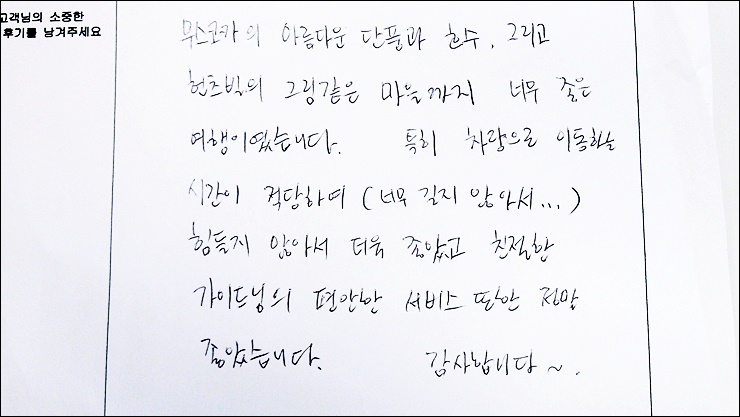 고객님의 소중한
후기를 남겨주세요
무스코카의 아름다운 단풍과 호수, 그리고
헌츠빌의 그림같은 마을까지 너무 좋은
여행이였습니다. 특히 차량으로 이동하는
시간이 적당하여 (너무 길지 않아서...)
힘들지 않아서 더욱 좋았고 친절한
가이드님의 편안한 서비스 또한 정말
좋았습니다. 감사합니다~.